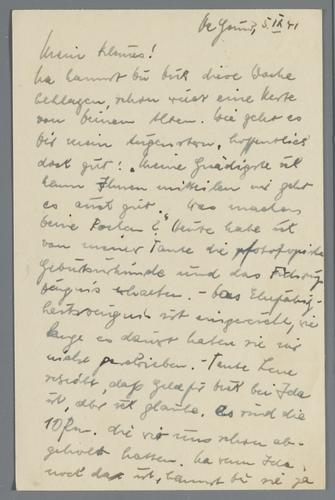 De Grind, 5 IX 41
Mein Klaus!
Da kannst du dich diese Woche
beklagen, schon zwei eine Karte
von deinem Alten. Wie geht es
dir mein Augenstern, hoffentlich
doch gut! "Meine Gnädigste ich
kann Ihnen mitteilen mir geht
es auch gut. Was machen
deine Pocken?" Heute habe ich
von meiner Tante die photokopierte
Geburtsurkunde und das
erhalten. - Das Ehefähig-
keitszeugnis ist eingereicht, wie
lange es dauert haben sie mir
nicht geschrieben. - Tante Lene
erzählt, daß du bei Ida
ist, aber ich glaube, es sind die
10 Rm. die wir uns schon ab-
geholt hatten. Na wenn Ida
noch da ist, kannst du sie ja